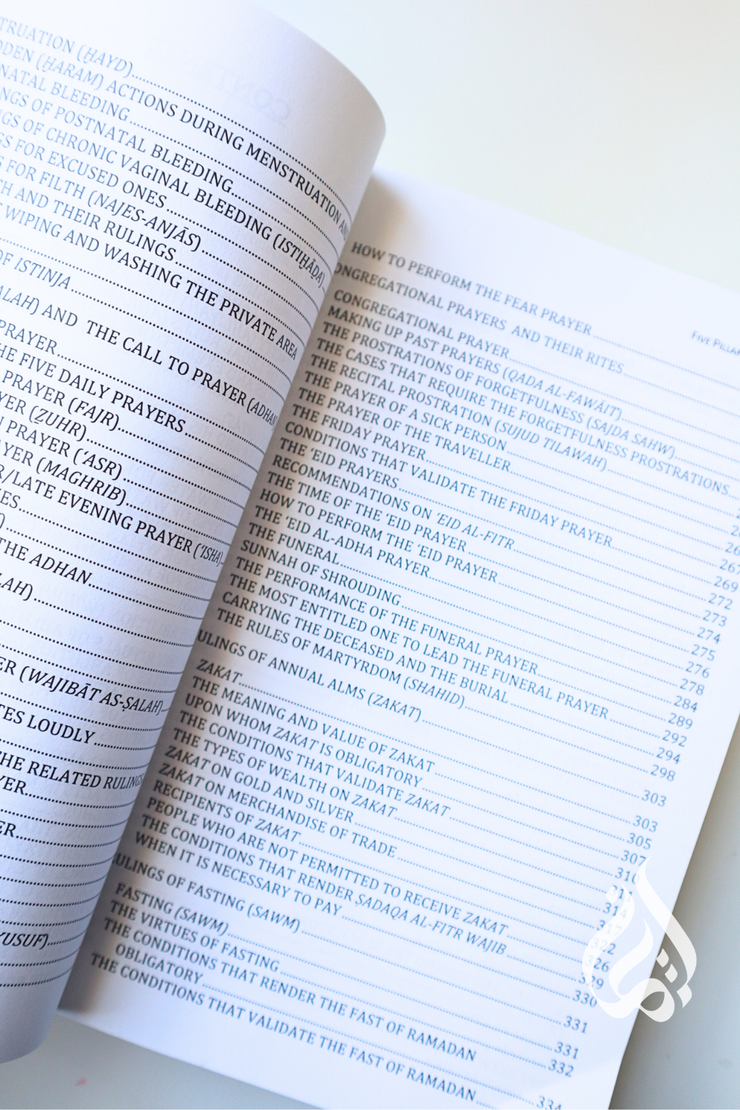 (ḤAYD)
(ḤARAM) ACTIONS DURING MENSTRUATION
BLEEDING
OF POSTNATAL BLEEDING
OF CHRONIC VAGINAL BLEEDING (ISTIḤĀḌA)
FOR EXCUSED ONES
FOR FILTH (NAJES-ANJĀS)
AND THEIR RULINGS
WIPING AND WASHING THE PRIVATE AREA
OF ISTINJA
AND THE CALL TO PRAYER (ADHAN
PRAYER
THE FIVE DAILY PRAYERS
PRAYER (FAJR)
(ZUHR)
PRAYER ('ASR)
(MAGHRIB)
/LATE EVENING PRAYER ('ISHA)
THE ADHAN
(WAJIBĀT AS-ṢALAH)
LOUDLY
THE RELATED RULINGS
FIVE
HOW TO PERFORM THE FEAR PRAYER
CONGREGATIONAL PRAYERS AND THEIR RITES
CONGREGATIONAL PRAYER
MAKING UP PAST PRAYERS (QADA AL-FAWĀIT)
THE PROSTRATIONS OF FORGETFULNESS (SAJDA SAHW)
THE CASES THAT REQUIRE THE FORGETFULNESS PROSTRATIONS
THE RECITAL PROSTRATION (SUJUD TILAWAH)
THE PRAYER OF A SICK PERSON
THE PRAYER OF THE TRAVELLER
THE FRIDAY PRAYER
CONDITIONS THAT VALIDATE THE FRIDAY PRAYER
THE 'EID PRAYERS
RECOMMENDATIONS ON 'EID AL-FITR
THE TIME OF THE 'EID PRAYER
HOW TO PERFORM THE 'EID PRAYER
THE 'EID AL-ADHA PRAYER
THE FUNERAL
SUNNAH OF SHROUDING
THE PERFORMANCE OF THE FUNERAL PRAYER
THE MOST ENTITLED ONE TO LEAD THE FUNERAL PRAYER
CARRYING THE DECEASED AND THE BURIAL
THE RULES OF MARTYRDOM (SHAHID)
RULINGS OF ANNUAL ALMS (ZAKAT)
ZAKAT
THE MEANING AND VALUE OF ZAKAT
UPON WHOM ZAKAT IS OBLIGATORY
THE CONDITIONS THAT VALIDATE ZAKAT
THE TYPES OF WEALTH ON ZAKAT
ZAKAT ON GOLD AND SILVER
ZAKAT ON MERCHANDISE OF TRADE
RECIPIENTS OF ZAKAT
PEOPLE WHO ARE NOT PERMITTED TO RECEIVE ZAKAT
THE CONDITIONS THAT RENDER ṢADAQA AL-FITR WAJIB
WHEN IT IS NECESSARY TO PAY
RULINGS OF FASTING (SAWM)
FASTING (SAWM)
THE VIRTUES OF FASTING
THE CONDITIONS THAT RENDER THE FAST OF RAMADAN
OBLIGATORY
THE CONDITIONS THAT VALIDATE THE FAST OF RAMADAN
267
269
272
273
274
275
276
278
284
289
292
294
298
303
303
305
307
330
331
331
332
334